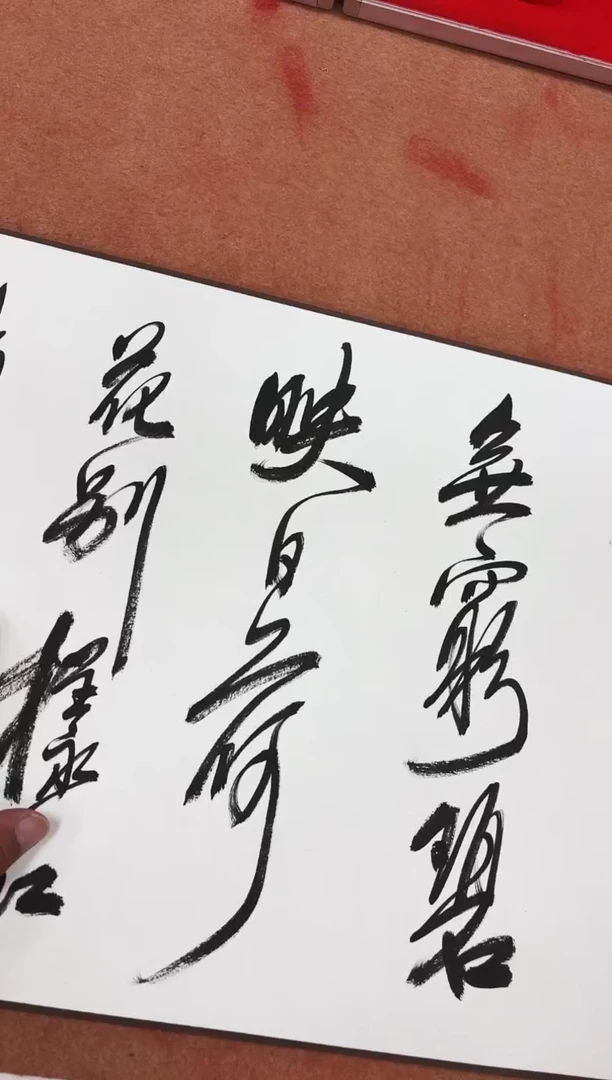 無窮碧
映日荷
花别樣